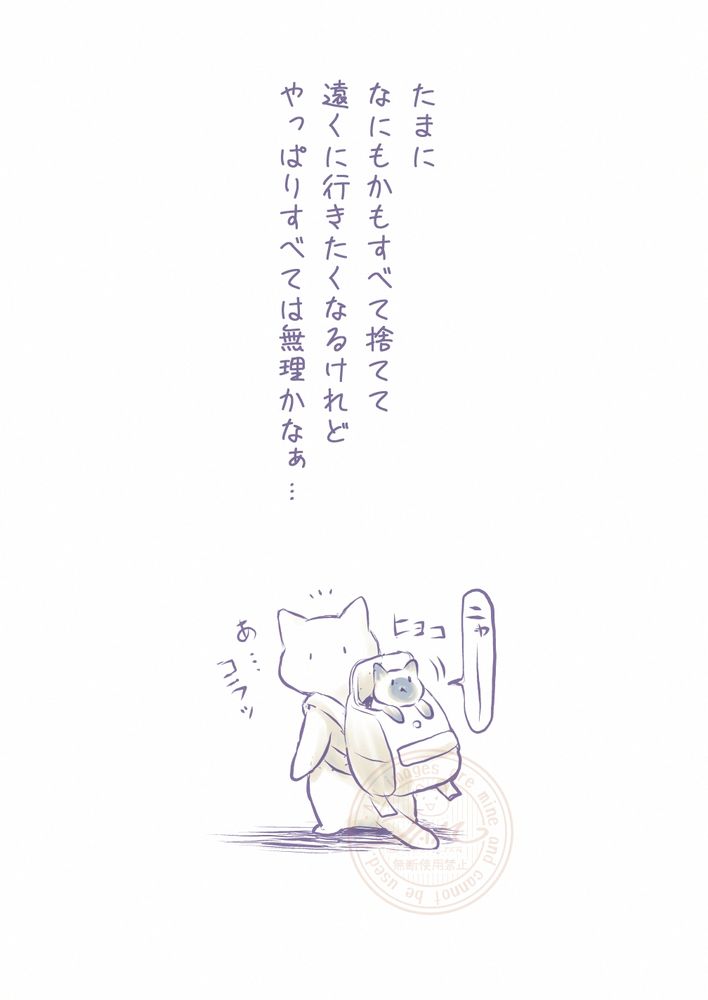 たまに
なにもかもすべて捨てて
遠くに行きたくなるけれど
やっぱりすべては無理かなぁ…
ニャー
ヒョコ
あ…
コラッ
images are mine and cannot be used
無断使用禁止